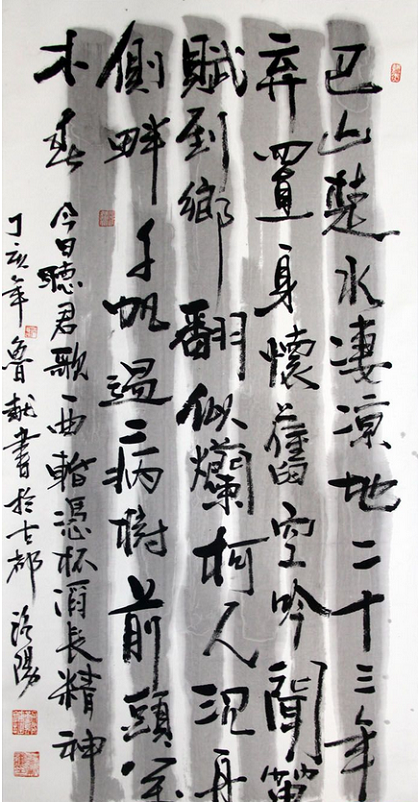 巴山楚水凄涼地二十三年
弃置身懷舊空吟聞笛
賦到鄉翻似爛柯人沉舟
側畔千帆過病樹前頭万
木春
今日聽君歌一曲暫憑杯酒長精神
丁亥年魯書於古都洛陽